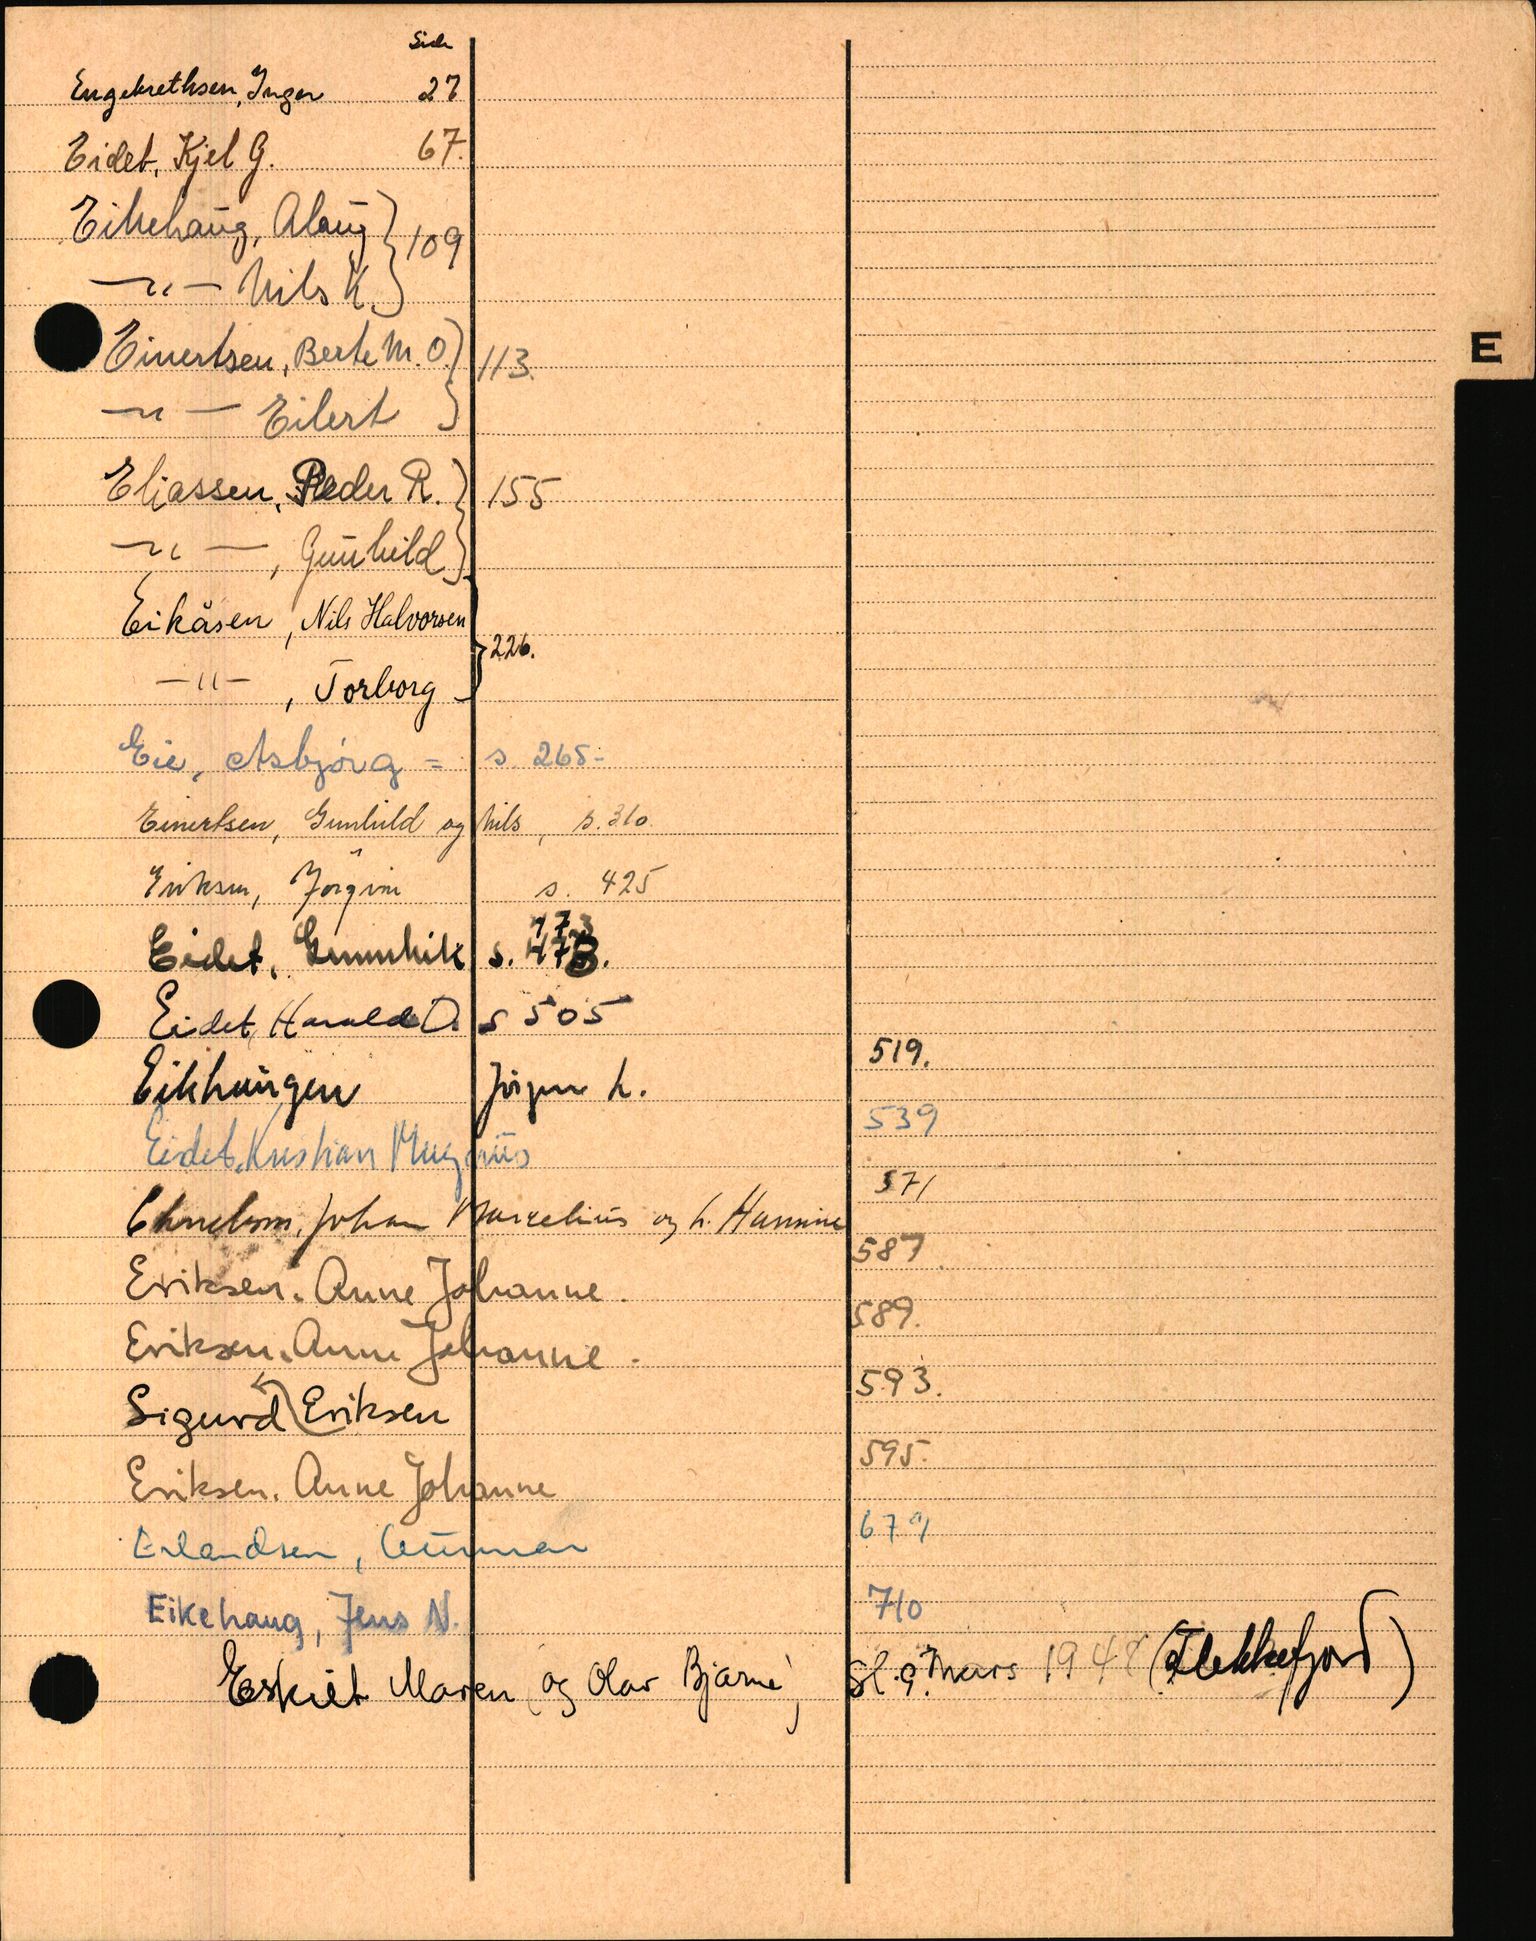 Side
Engebrethsen, Inger 27
Eidet, Kjel G. 67.
Eikehaug, Alaug } 109
—"— Nils K.
E
Einertsen, Berte M. O. } 113.
—"— Eilert
Eliassen, Peder R. } 155
—"—, Gunhild
Eikåsen, Nils Halvorsen } 226.
—"—, Torborg
Eie, Asbjörg = s. 265-
Einertsen, Gunhild og Nils, s. 310.
Eriksen, Jörgine s. 425
473
Eidet, s. 473.
Eidet, Harald O. s 505
Eikhaugen Jörgen L. 519.
Eidet, Kristian Magnus 539
Johan Marcelius og h. Hansine 571
Eriksen. Anne Johanne. 587
Eriksen. Anne Johanne. 589.
Sigurd Eriksen 593.
Eriksen. Anne Johanne 595.
Erlandsen, Gunnar
Eikehaug, Jens N. 710
Maren og Olav Bjarne, mars 1948 (Flekkefjord)